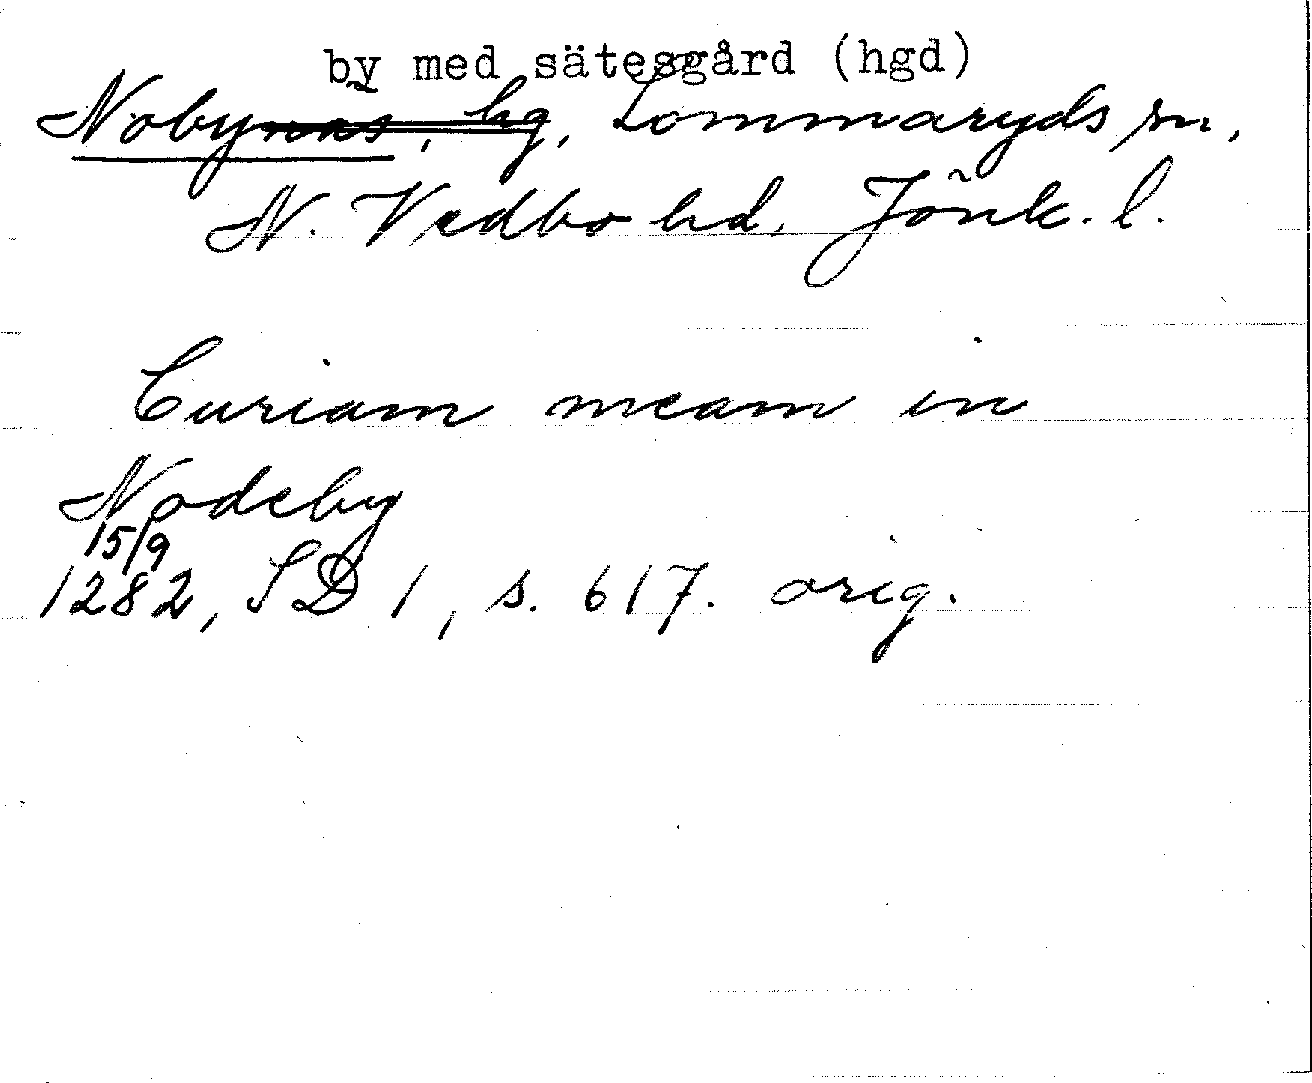 by med sätesgård (hgd)
Nobynäs, hg, Lommaryds sn,
N. Vedbo hd, Jönk. l.
Curiam meam in
Nodeby
15/9
1282, SD 1, s. 617. orig.